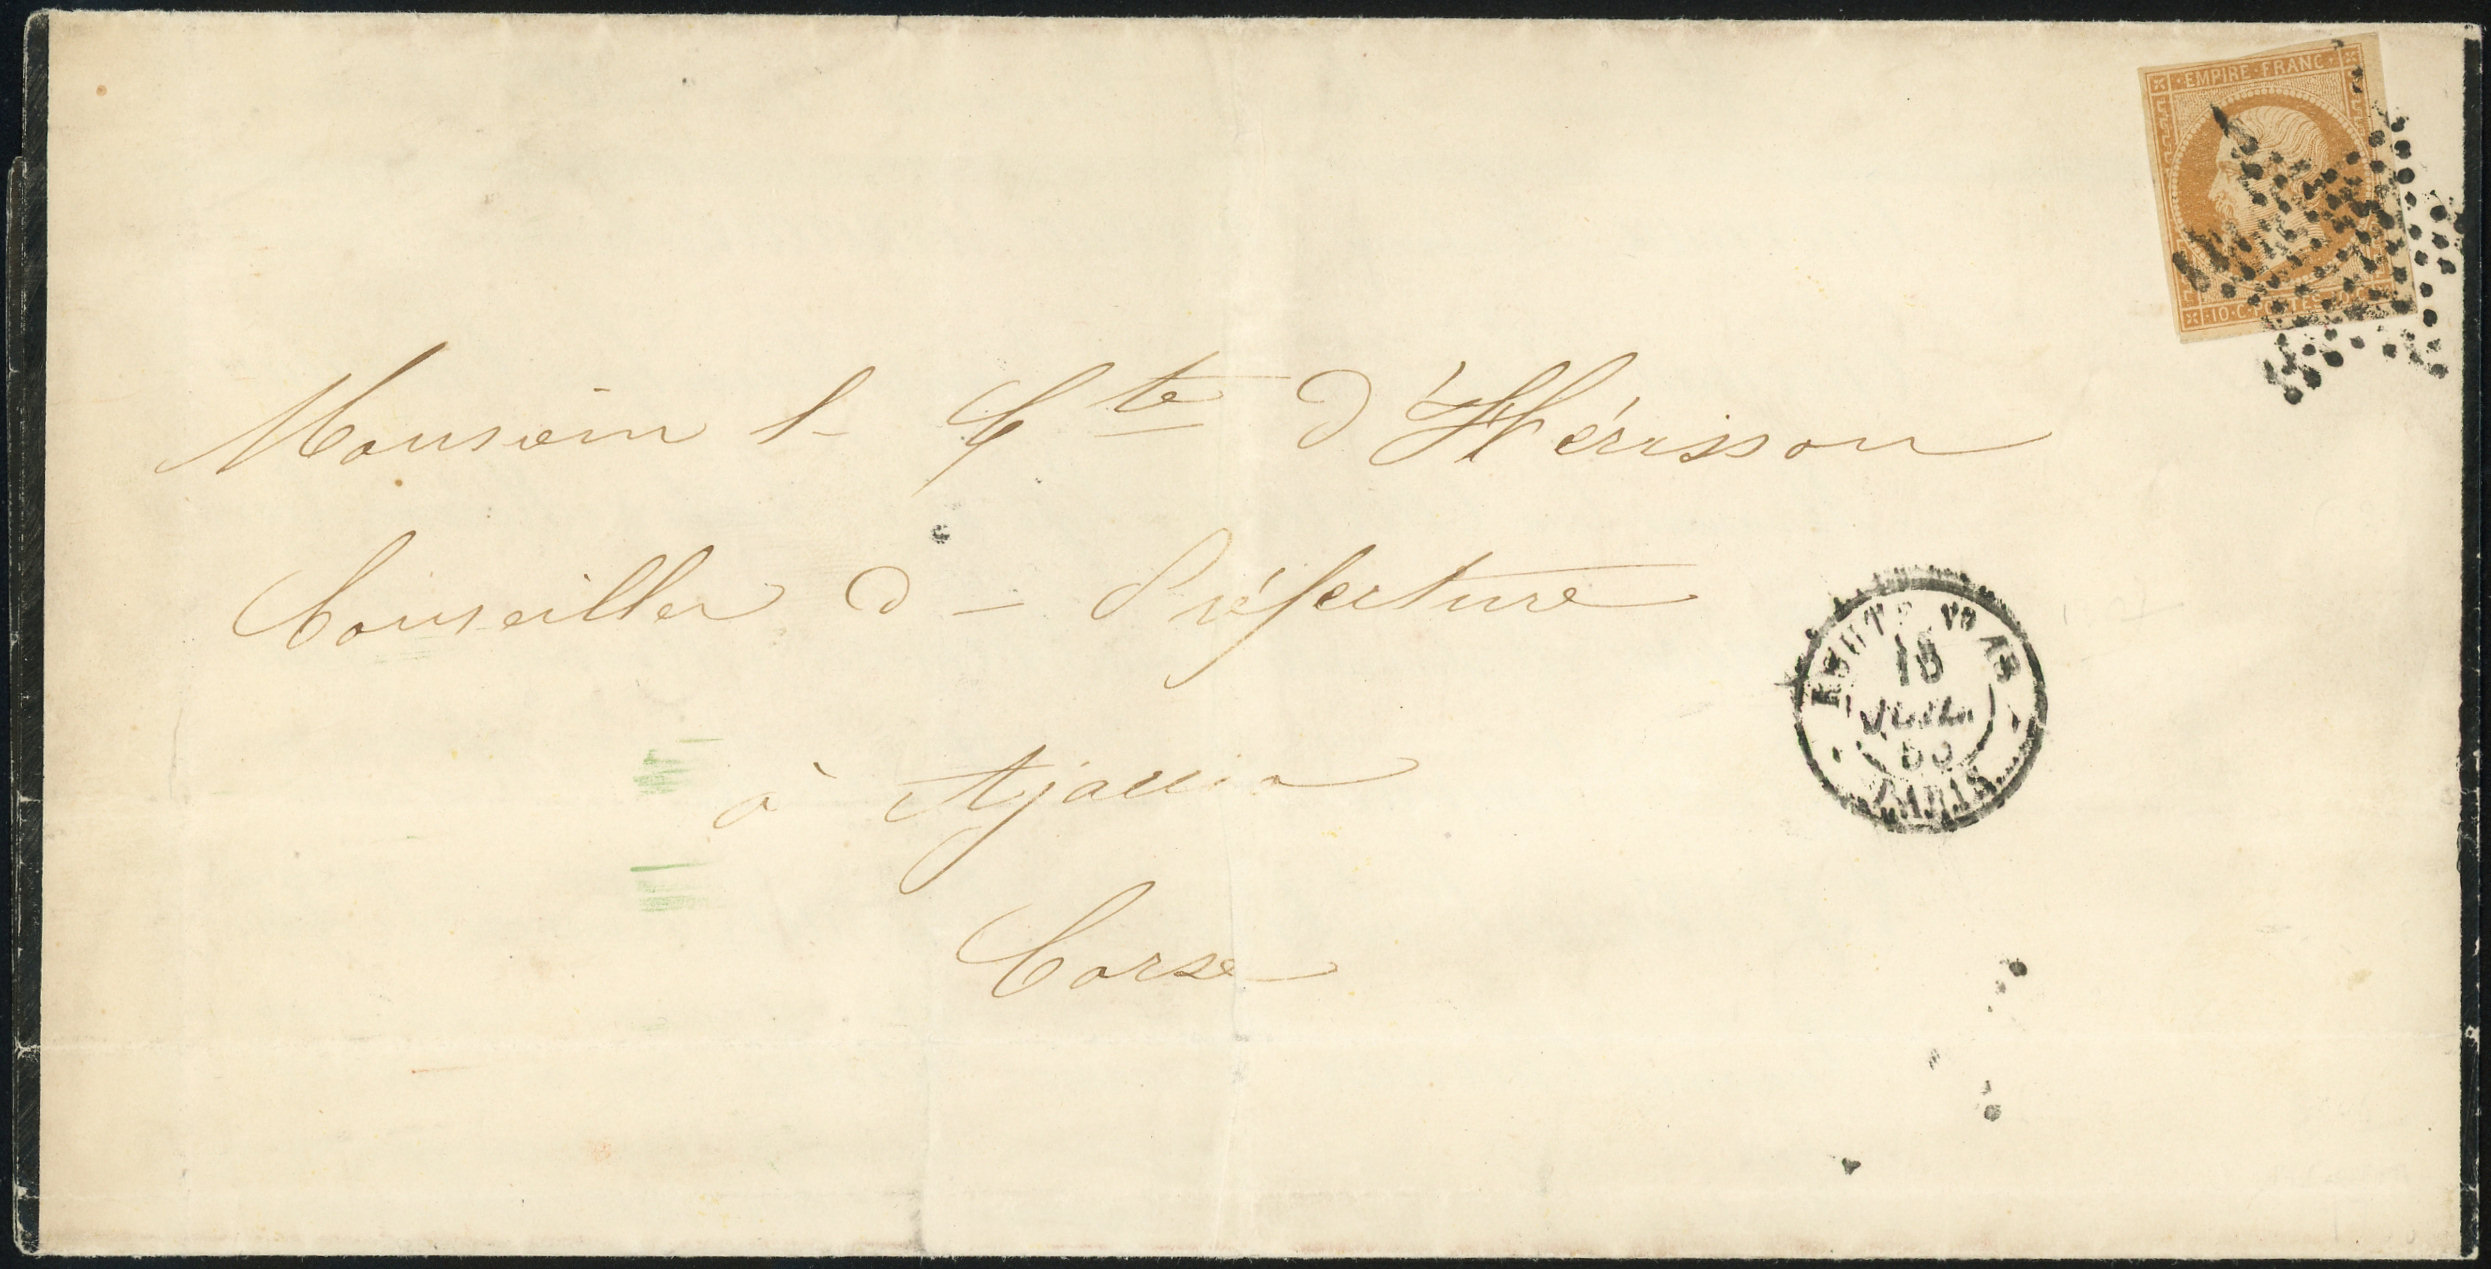 EMPIRE · FRANC ·
· 10 · C · POSTES · 10 · C ·
Monsieur le Cte d'Hérisson
Conseiller de Préfecture
à Ajaccio
Corse
18
JUIL.
PARIS